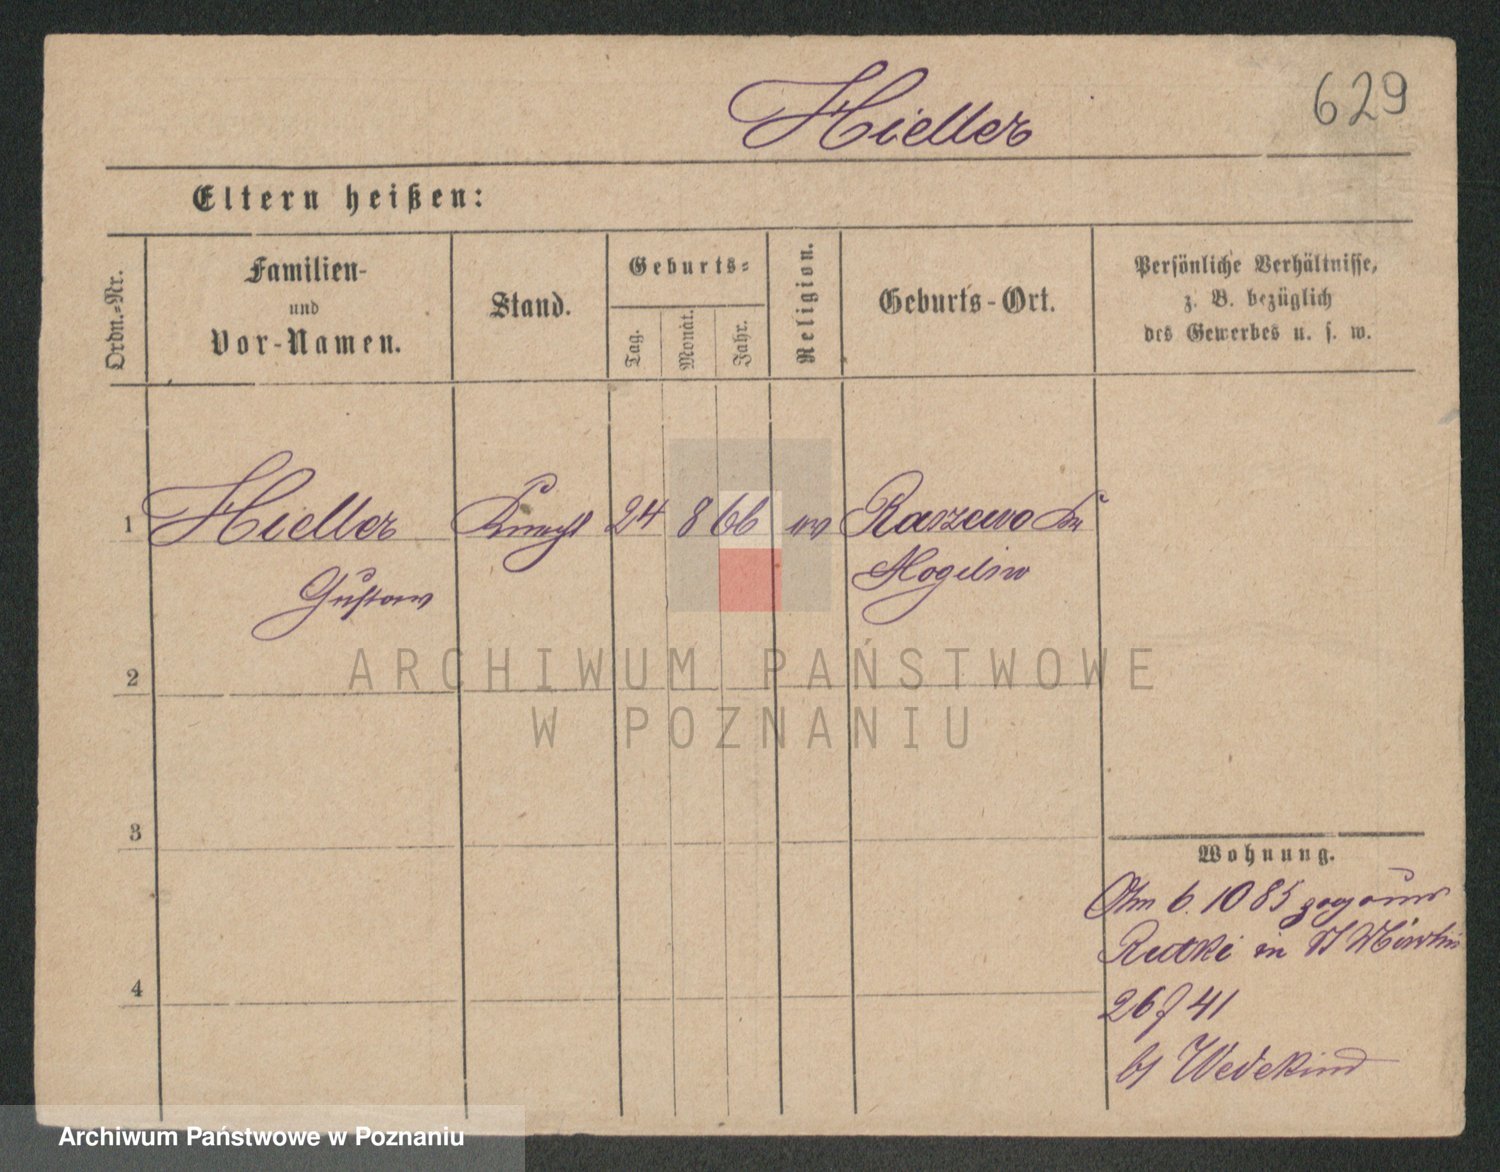 Hieller
629
Eltern heißen:
Ordn.-Nr.
Familien-
und
Vor-Namen.
Stand.
Geburts-
Tag.
Monat.
Jahr.
Religion.
Geburts-Ort.
Persönliche Verhältnisse,
z. B. bezüglich
des Gewerbes u. s. w.
1 Hieller Knecht 24 8 66 ev Raszewo Kr
Gustav Mogilno
2
3
4
Wohnung.
6. 10 85
Rudki in St Martin
26 41
bj Wedekind
ARCHIWUM PAŃSTWOWE
W POZNANIU
Archiwum Państwowe w Poznaniu